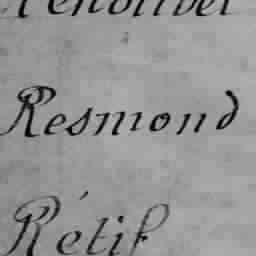 Resmond
Rétif